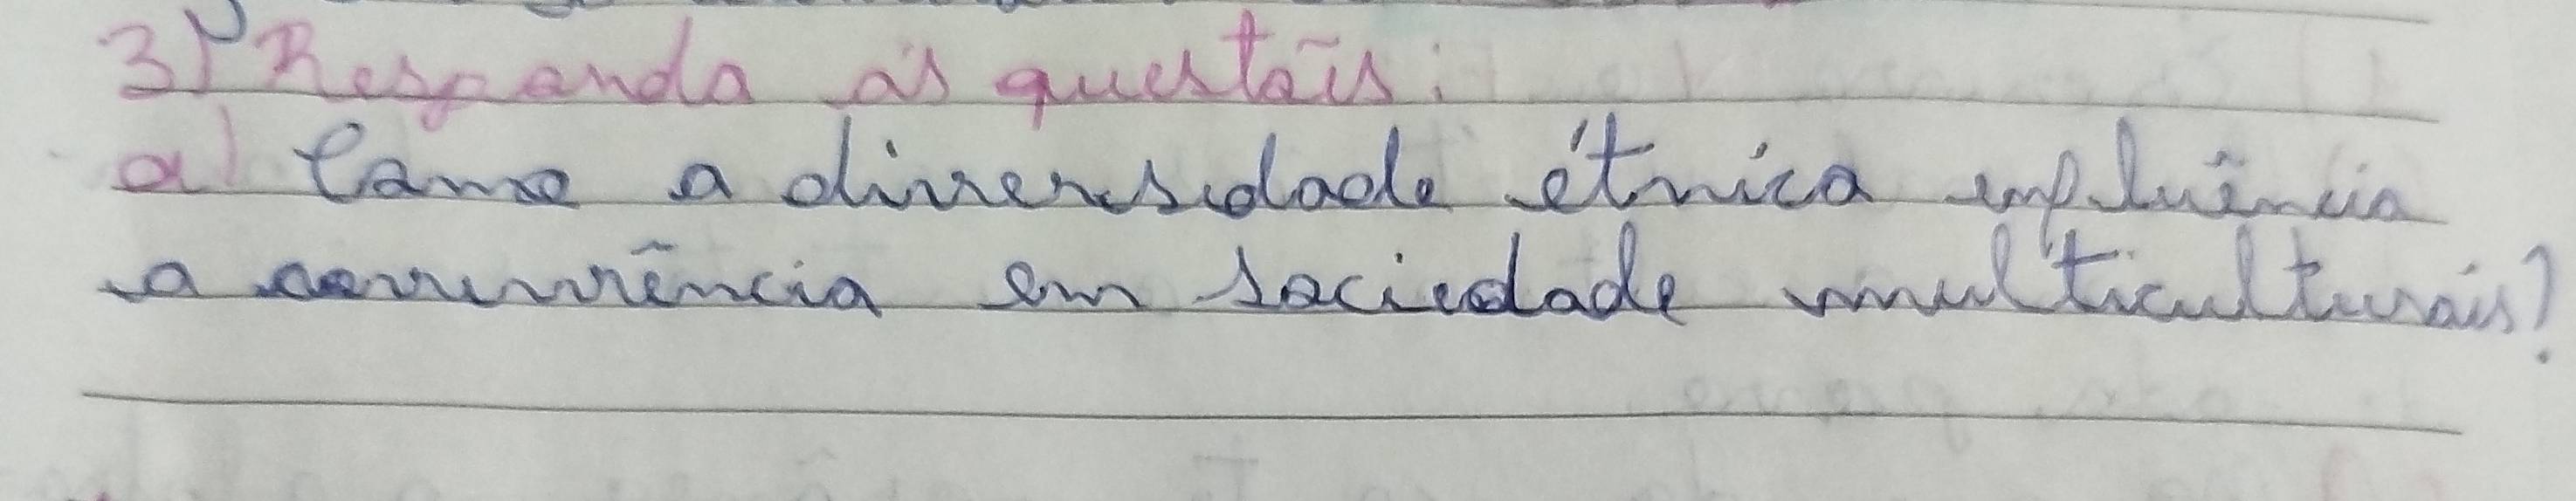 3) Responda as questões:
a) Como a diversidade étnica influência
a convivência em sociedade multiculturais?